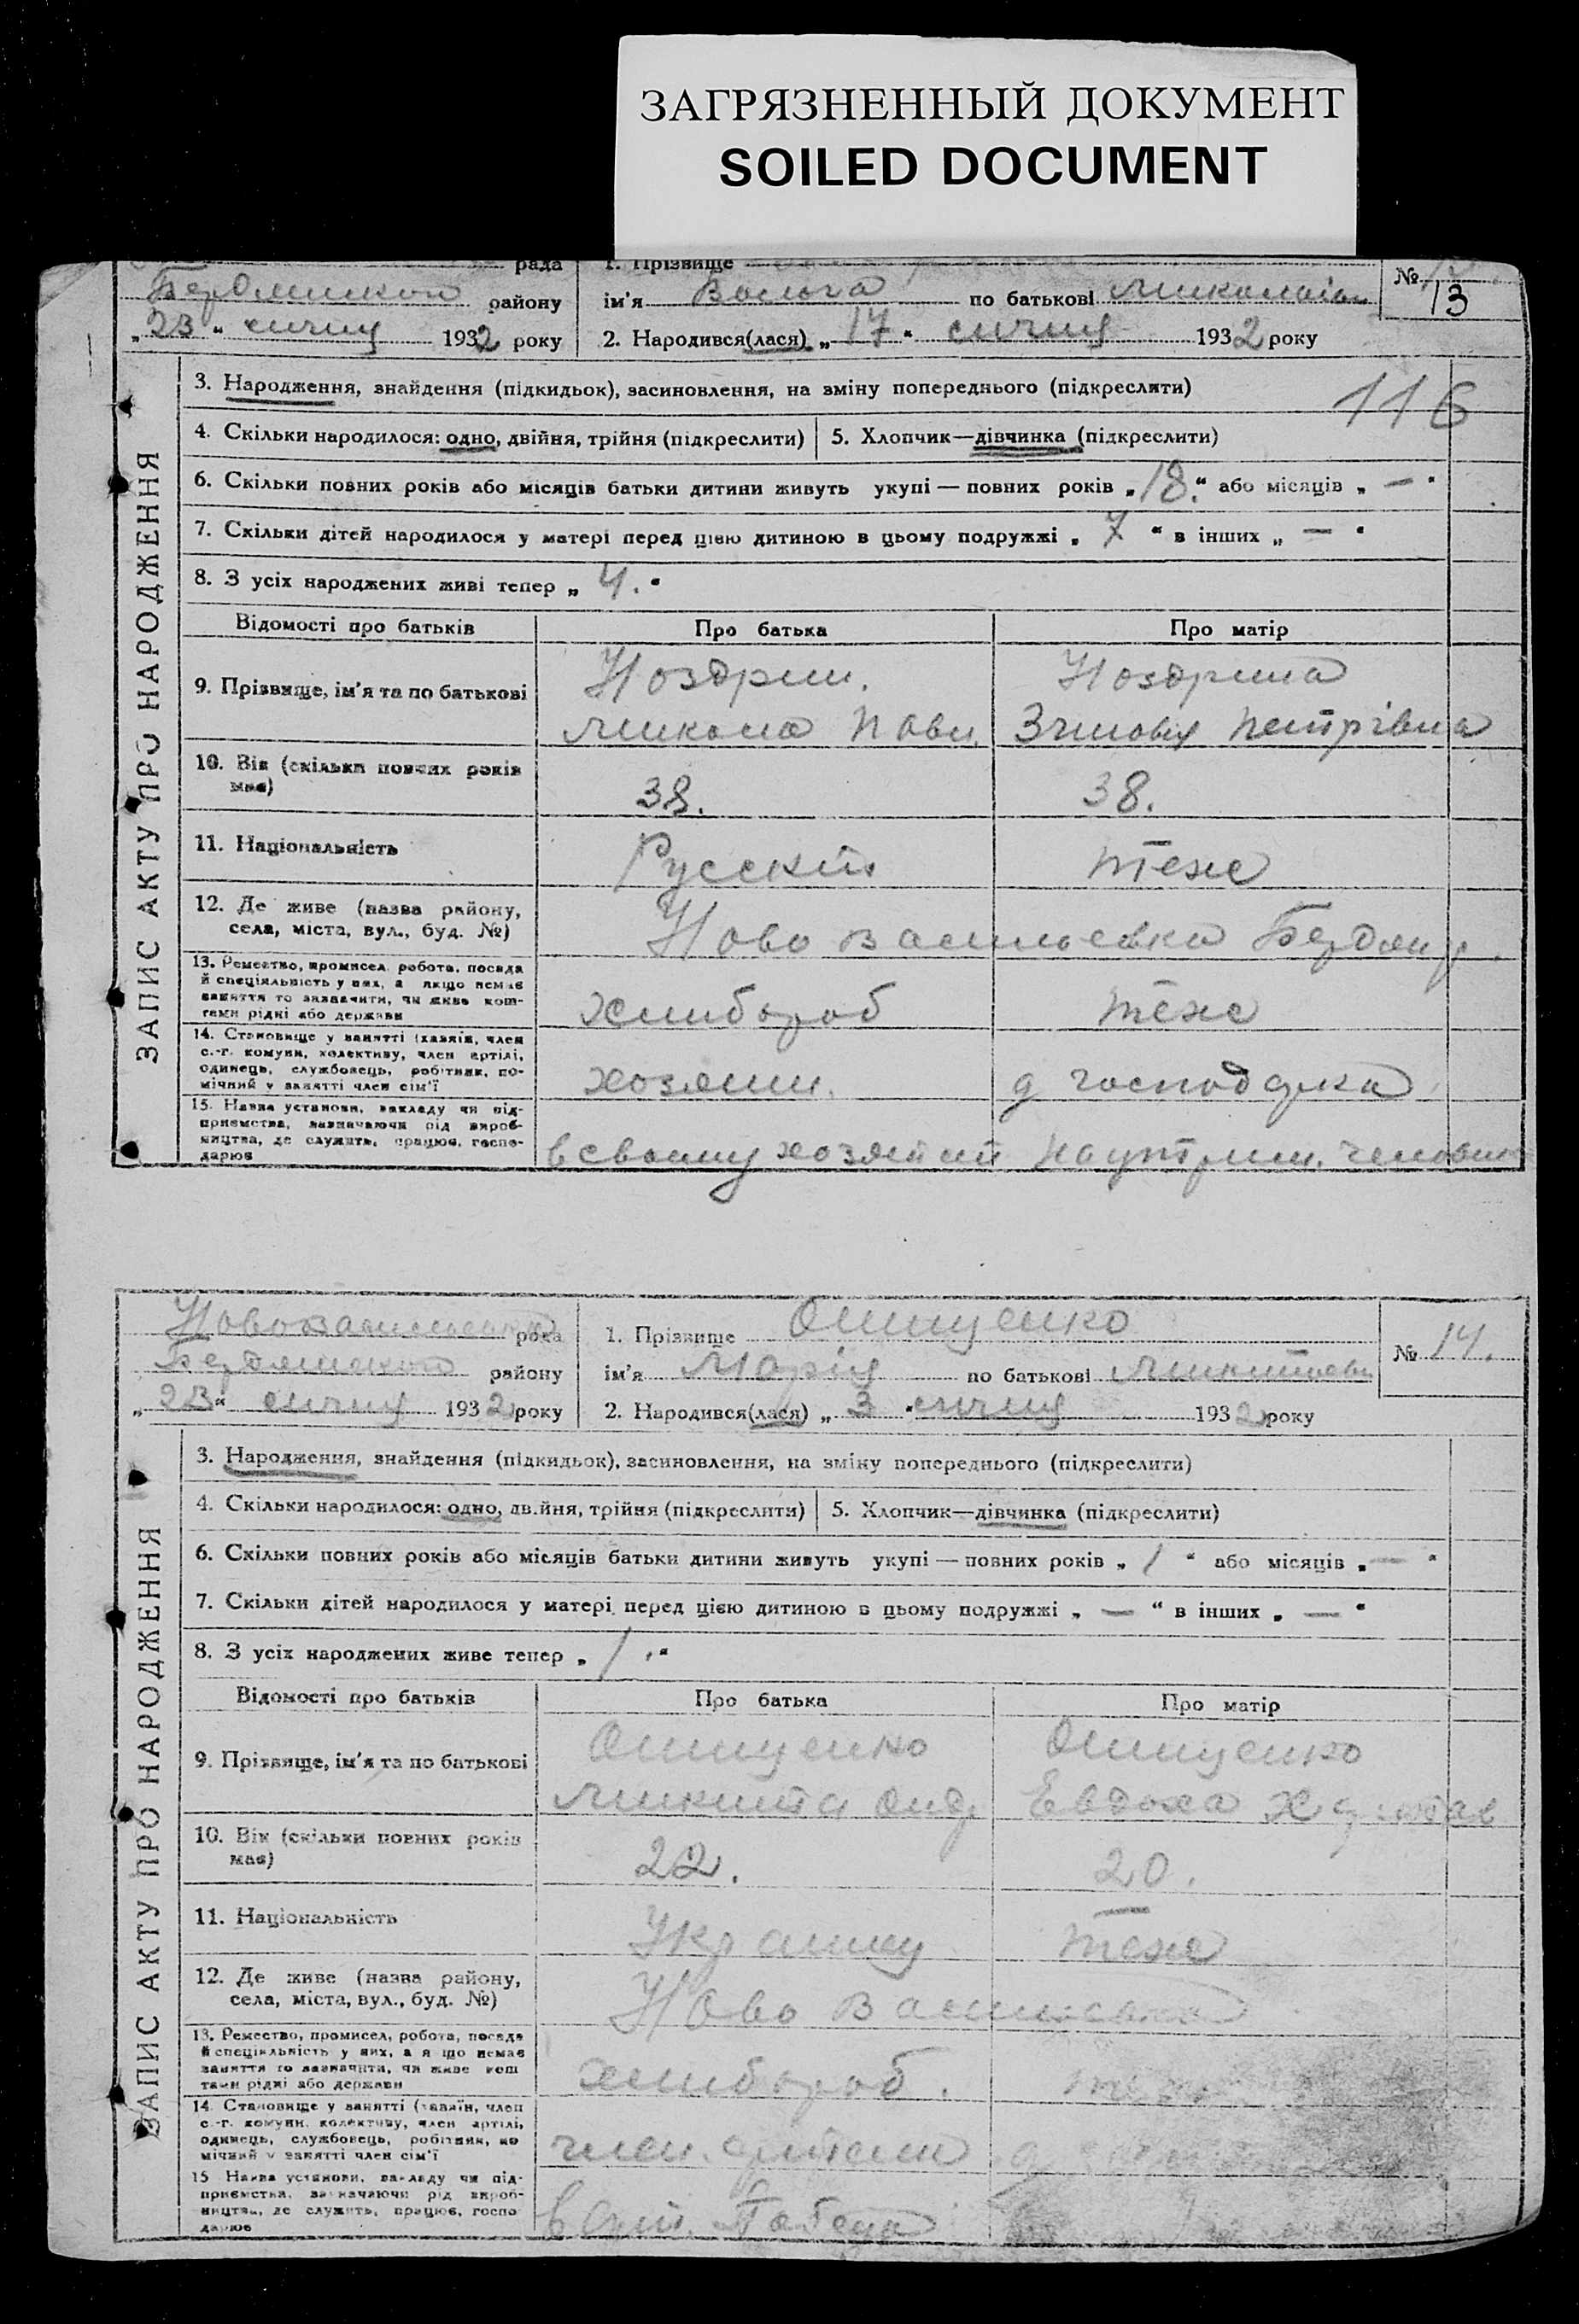 ЗАГРЯЗНЕННЫЙ ДОКУМЕНТ
SOILED DOCUMENT
рада
1. Прізвище
№
13
Бердянського району
ім'я по батькові
„23" січня 1932 року
2. Народився(лася) „17" січня 1932 року
3. Народження, знайдення (підкидьок), засиновлення, на зміну попереднього (підкреслити)
116
4. Скільки народилося: одно, двійня, трійня (підкреслити)
5. Хлопчик—дівчинка (підкреслити)
6. Скільки повних років або місяців батьки дитини живуть укупі — повних років „18." або місяців „—"
7. Скільки дітей народилося у матері перед цією дитиною в цьому подружжі „7" в інших „—"
8. З усіх народжених живі тепер „4."
Відомості про батьків
Про батька
Про матір
9. Прізвище, ім'я та по батькові
Ноздрин.
Микола Павл.
Ноздрина
Зиновія Петрівна
10. Вік (скільки повних років має)
38.
38.
11. Національність
Русский
теже
12. Де живе (назва району,
села, міста, вул., буд. №)
Ново Васильевка Бердян р.
13. Ремество, промисел, робота, посада
й спеціяльність у них, а якщо немає
заняття то зазначити, чи живе кош-
тами рідні або держави
хлибороб
теже
14. Становище у занятті (хазяїн, член
с.-г. комуни, колективу, член артілі,
одинець, службовець, робітник, по-
мічний у занятті член сім'ї
хозяин.
д господарка
15. Назва установи, закладу чи під-
приємства, зазначаючи рід вироб-
ництва, де служить, працює, госпо-
дарює
в своему хозяйсті
на утрим. человика
ЗАПИС АКТУ ПРО НАРОДЖЕННЯ
Нововасильевка рада
1. Прізвище Онищенко
№ 14.
Бердянського району
ім'я Марія по батькові Микитовна
„23" січня 1932 року
2. Народився(лася) „3" січня 1932 року
3. Народження, знайдення (підкидьок), засиновлення, на зміну попереднього (підкреслити)
4. Скільки народилося: одно, двійня, трійня (підкреслити)
5. Хлопчик—дівчинка (підкреслити)
6. Скільки повних років або місяців батьки дитини живуть укупі — повних років „1" або місяців „—"
7. Скільки дітей народилося у матері перед цією дитиною в цьому подружжі „—" в інших „—"
8. З усіх народжених живе тепер „1."
Відомості про батьків
Про батька
Про матір
9. Прізвище, ім'я та по батькові
Онищенко
Микита Анд
Онищенко
Евдоха
10. Вік (скільки повних років
має)
22.
20.
11. Національність
Украинец
теже
12. Де живе (назва району,
села, міста, вул., буд. №)
Ново Васильевка
13. Ремество, промисел, робота, посада
й спеціяльність у них, а якщо немає
заняття то зазначити, чи живе кош
тами рідні або держави
хлибороб.
теже
14. Становище у занятті (хазяїн, член
с.-г. комуни, колективу, член артілі,
одинець, службовець, робітник, по
мічний у занятті член сім'ї
член. артели
15 Назва установи, закладу чи під-
приємства, зазначаючи рід вироб-
ництва, де служить, працює, госпо
дарює
в арт.
ЗАПИС АКТУ ПРО НАРОДЖЕННЯ